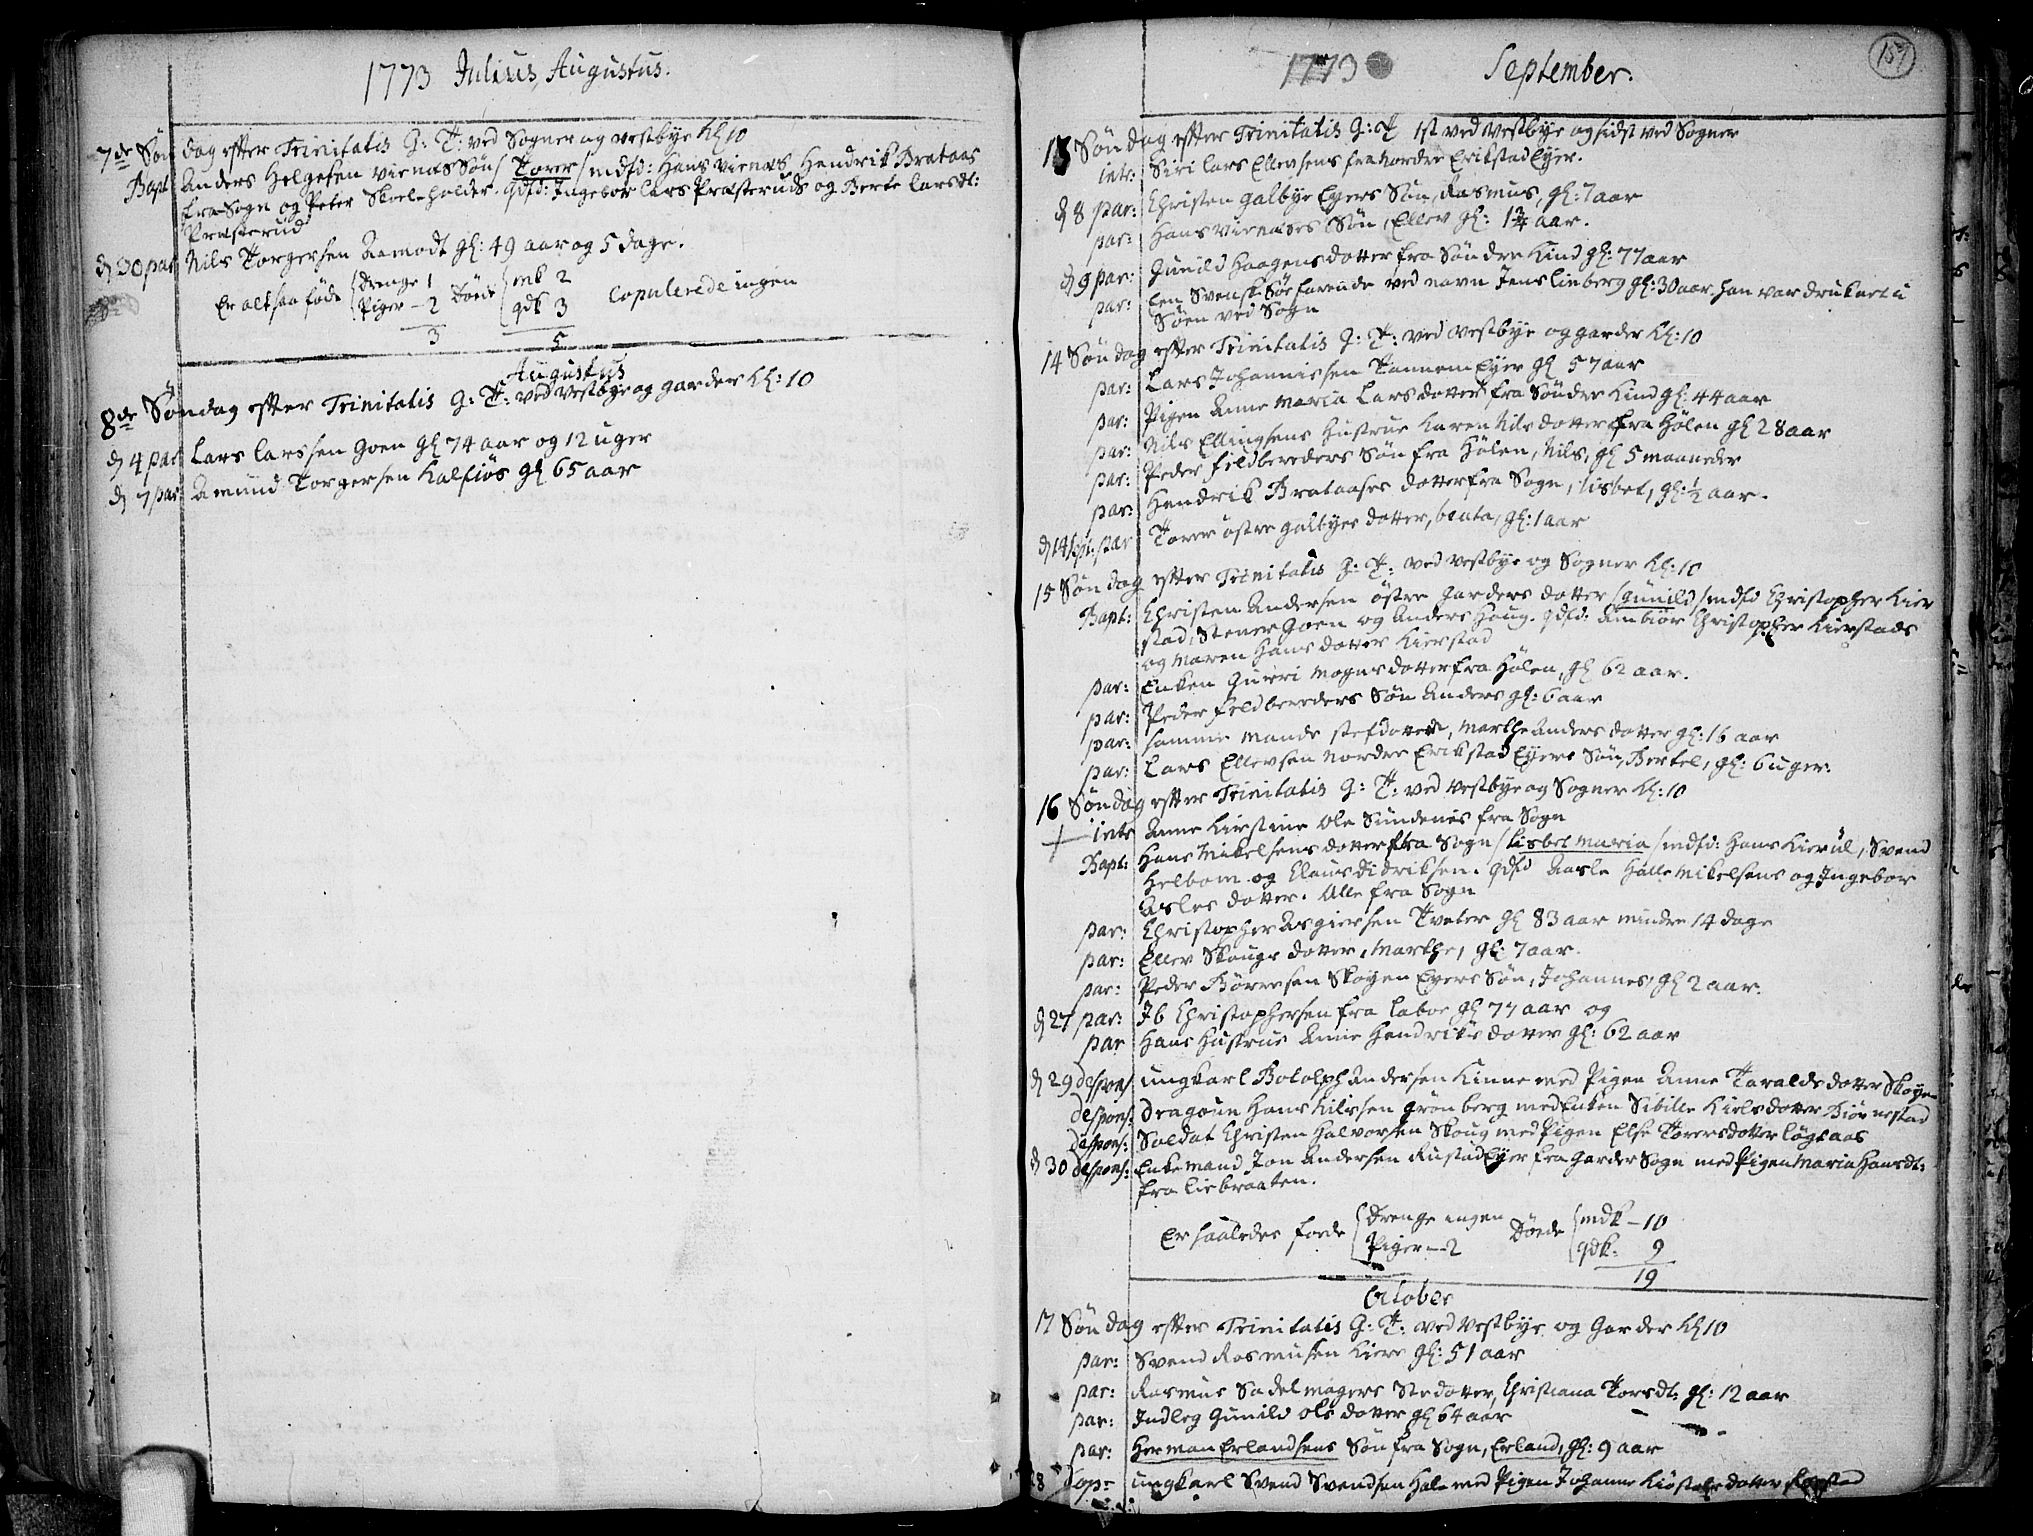 1773 Julius, Augustus.
7de Søndag effter Trinitatis G: T: ved Sogner og Vestbye Kl 10
Bapt Anders Helgesen Viernæs Søn / Torer / mdfd: Hans Viernæs Hendrik Brataas
fra Sogn og Peter Skoeleholder. qdfd: Ingebor Lars Præsteruds og Berte Larsdt:
Præsterud
d 30 par Nils Torgersen Aamodt gl: 49 aar og 5 dage.
Er altsaa føde Drenge 1 Døde mk 2 Copulerede ingen
Piger – 2 qdk 3
3 5
Augustus
8de Søndag effter Trinitatis G: T: ved Vestbye og Garder Kl: 10
d 4 par Lars Larssen Goen gl 74 aar og 12 uger
d 7 par Amund Torgersen Kalfiøs gl 65 aar
1773 September. 157
13 Søndag effter Trinitatis G: T 1st ved Vestbye og sidst ved Sogner
intr: Siri Lars Ellevsens fra Nordre Erikstad Eyer.
d 8 par: Christen Galbye Eyers Søn, Rasmus, gl: 7 aar
par: Hans Viernæses Søn, Ellev gl: 1 3/4 aar.
d 9 par: Gunild Haagensdotter fra Søndre Kind gl: 77 aar
par: En Svensk Søefarende ved navn Jens Linberg gl: 30 aar, han var druknet i
Søen ved Sogn
14 Søndag effter Trinitatis G: T: ved Vestbye og Garder Kl: 10
par: Lars Johannissen Tannem Eyer gl 57 aar
par: Pigen Anne Maria Larsdotter fra Søndre Kind gl: 44 aar
par: Nils Ellingsens Hustrue Karen Nilsdotter fra Hølen gl 28 aar
par: Peder Feldbereders Søn fra Hølen, Nils, gl 5 maaneder
par: Hendrik Brataases dotter fra Sogn, Lisbet, gl: 1/2 aar.
d 14 par Torer østre Galbyes dotter, beata, gl: 1 aar
15 Søndag effter Trinitatis G: T: ved Vestbye og Sogner Kl: 10
Bapt: Christen Andersen østre Garders dotter / Gunild / mdfd Christopher Kier
stad, Stener Goen og Anders Haug. qdfd: Ambiør Christopher Kierstads
og Maren Hansdotter Kierstad
par: Enken Guri Mognsdotter fra Hølen, gl 62 aar.
par: Peder Feldbereders Søn Anders gl: 6 aar
par: samme Mands stefdotter, Marthe Andersdotter gl: 16 aar
par: Lars Ellevsen Nordre Erikstad Eyers Søn, Bertel, gl: 6 uger.
16 Søndag effter Trinitatis G: T: ved Vestbye og Sogner Kl: 10
intr Anne Kirstine Ole Sundenes fra Sogn
Bapt: Hans Mikelsens dotter fra Sogn / Lisbet Maria / mdfd: Hans Kierul, Svend
Helbom og Claus Didriksen. qdfd Aasle Halle Mikelsens og Ingebor
Asles dotter. Alle fra Sogn
par: Christopher Asgiersen Tveter gl 83 aar mindre 14 dage
par: Ellev Skougs dotter, Marthe, gl: 7 aar.
par: Peder Børresen Skoyen Eyers Søn, Johannes, gl 2 aar.
d 27 par: Ib Christophersen fra Laboe gl 77 aar og
par Hans Hustrue Anne Hendriksdotter gl: 62 aar
d 29 despons ungkarl Botolph Andersen Kinne med Pigen Anne Taraldsdotter Skoyen
despons: Dragoun Hans Nilssen Grønberg med Enken Sibille Nielsdotter Biørnestad
despons: Soldat Christen Halvorsen Skoug med Pigen Else Torersdotter Løgtaas
d 30 despons: Enkemand Jon Andersen Rustad Eyer fra Garder Sogn med Pigen Maria Hansdt:
fra Liebraaten.
Er saaledesføde Drenge ingen Døede mdk – 10
Piger – 2 qdk: 9
19
October
17 Søndag effter Trinitatis G: T: ved Vestbye og Garder Kl 10
par: Svend Rasmusen Kiere gl: 51 aar
par: Rasmus Sadelmagers Stedotter, Christiana Torsdt: gl: 12 aar
par: Indleg Gunild Olsdotter gl 64 aar
par: Herman Erlandsens Søn fra Sogn, Erland, gl: 9 aar
8 Cop ungkarl Svend Svendsen Hale med Pigen Johanne